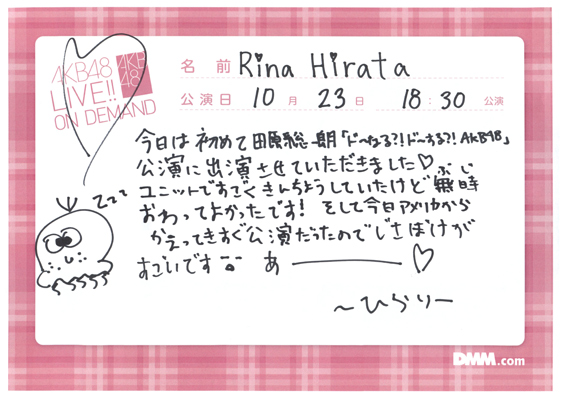 AKB48
LIVE!!
ON DEMAND
AKB
48
名前 Rina Hirata
公演日 10月 23日 18:30 公演
今日は初めて田原総一朗「ド〜なる?!ド〜する?! AKB48」
公演に出演させていただきました♡
ユニットですごくきんちょうしていたけど無時
ぶじ
おわってよかったです! そして今日アメリカから
かえってきすぐ公演だったのでじさぼけが
すごいです あ―――♡
〜ひらりー
DMM.com